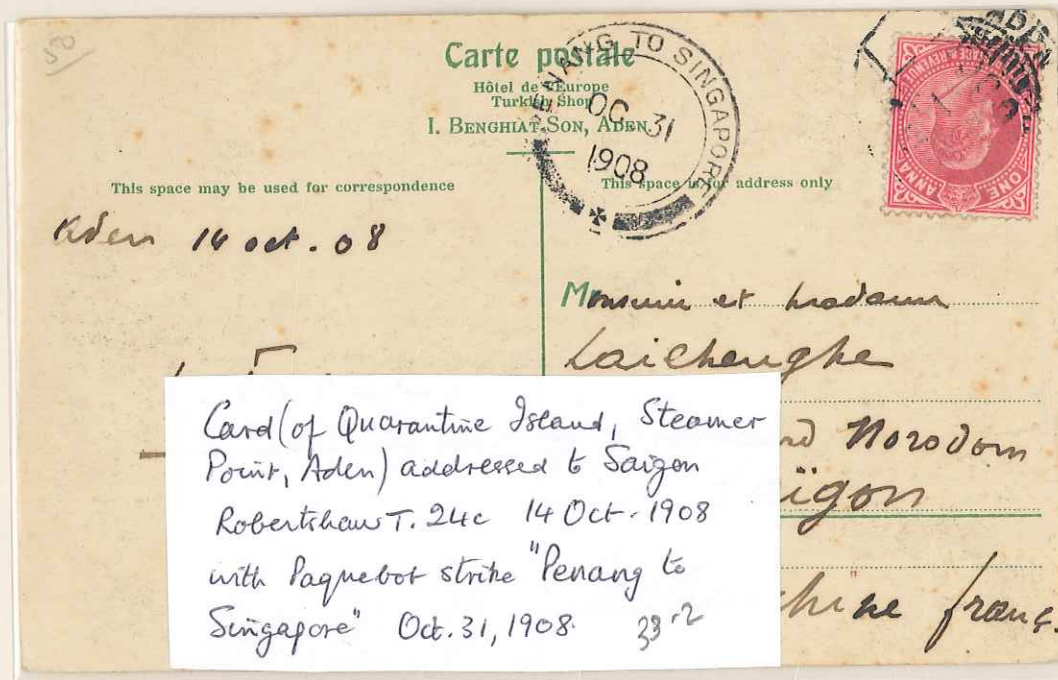 50
Carte postale
Hôtel de l'Europe
Turkish Shop
I. BENGHIAT SON, ADEN
PENANG TO SINGAPORE
OC 31
1908
ONE ANNA
This space may be used for correspondence
This space is for address only
Aden 14 oct. 08
Monsieur et Madame
Laichenghe
Norodom
ïgon
chine franç.
Card (of Quarantine Island, Steamer
Point, Aden) addressed to Saigon
Robertshaw T. 24c 14 Oct. 1908
with Paquebot strike "Penang to
Singapore" Oct. 31, 1908.